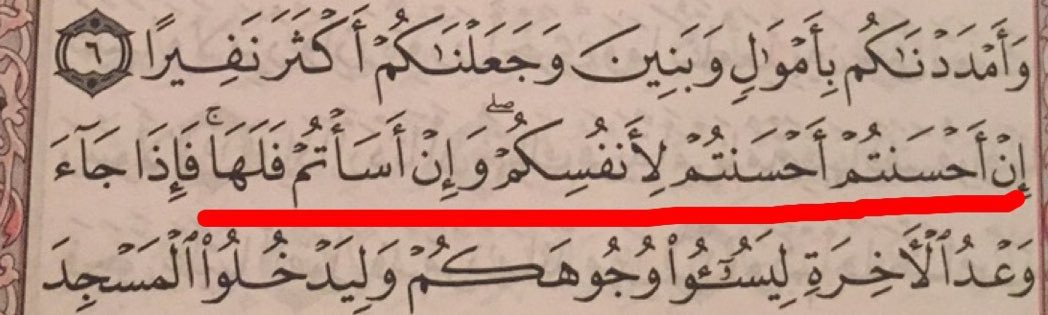 وَأَمْدَدْنَٰكُم بِأَمْوَٰلٍ وَبَنِينَ وَجَعَلْنَٰكُمْ أَكْثَرَ نَفِيرًا ٦
إِنْ أَحْسَنتُمْ أَحْسَنتُمْ لِأَنفُسِكُمْ ۖ وَإِنْ أَسَأْتُمْ فَلَهَا ۚ فَإِذَا جَآءَ
وَعْدُ ٱلْأَخِرَةِ لِيَسُۥٓـُٔوا۟ وُجُوهَكُمْ وَلِيَدْخُلُوا۟ ٱلْمَسْجِدَ